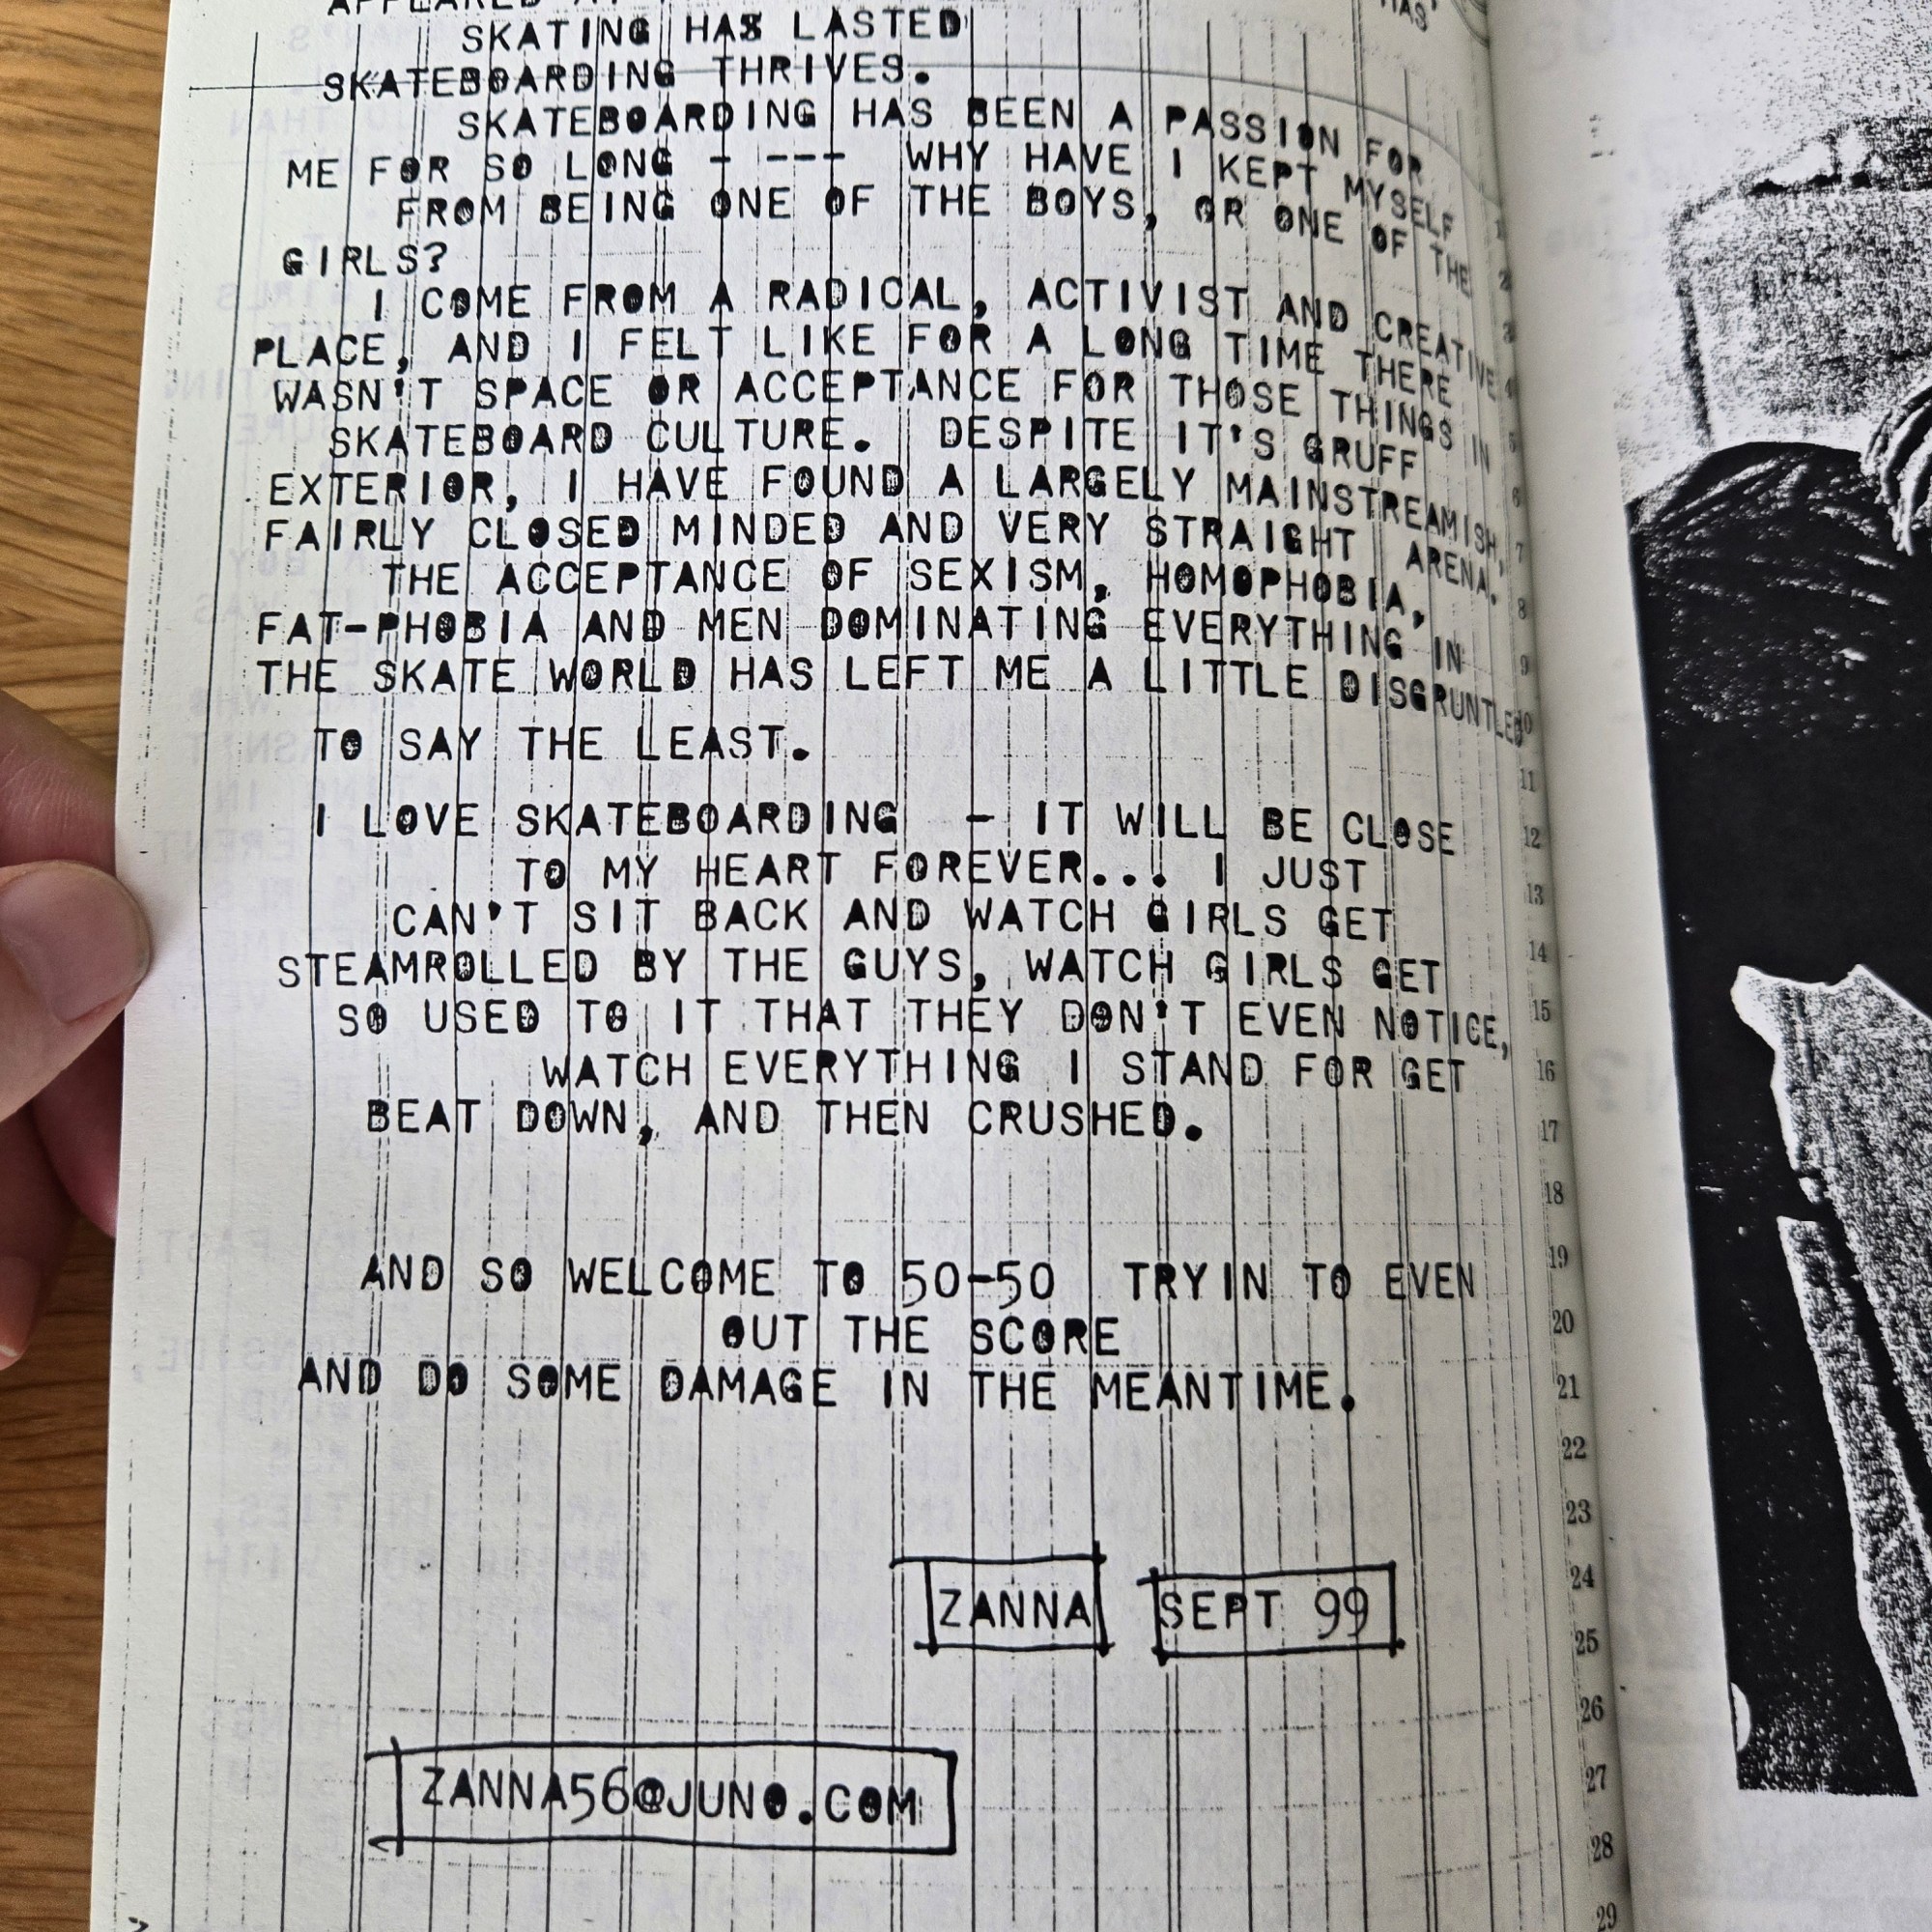 APPEARED AT
HAS
SKATING HAS LASTED
SKATEBOARDING THRIVES.
SKATEBOARDING HAS BEEN A PASSION FOR
ME FOR SO LONG - --- WHY HAVE I KEPT MYSELF
FROM BEING ONE OF THE BOYS, OR ONE OF THE
GIRLS?
I COME FROM A RADICAL, ACTIVIST AND CREATIVE
PLACE, AND I FELT LIKE FOR A LONG TIME THERE
WASN'T SPACE OR ACCEPTANCE FOR THOSE THINGS IN
SKATEBOARD CULTURE. DESPITE IT'S GRUFF
EXTERIOR, I HAVE FOUND A LARGELY MAINSTREAMISH,
FAIRLY CLOSED MINDED AND VERY STRAIGHT ARENA.
THE ACCEPTANCE OF SEXISM, HOMOPHOBIA,
FAT-PHOBIA AND MEN DOMINATING EVERYTHING IN
THE SKATE WORLD HAS LEFT ME A LITTLE DISGRUNTLED
TO SAY THE LEAST.
I LOVE SKATEBOARDING - IT WILL BE CLOSE
TO MY HEART FOREVER... I JUST
CAN'T SIT BACK AND WATCH GIRLS GET
STEAMROLLED BY THE GUYS, WATCH GIRLS GET
SO USED TO IT THAT THEY DON'T EVEN NOTICE,
WATCH EVERYTHING I STAND FOR GET
BEAT DOWN, AND THEN CRUSHED.
AND SO WELCOME TO 50-50 TRYIN TO EVEN
OUT THE SCORE
AND DO SOME DAMAGE IN THE MEANTIME.
ZANNA SEPT 99
ZANNA56@JUNO.COM
1
2
3
4
5
6
7
8
9
10
11
12
13
14
15
16
17
18
19
20
21
22
23
24
25
26
27
28
29